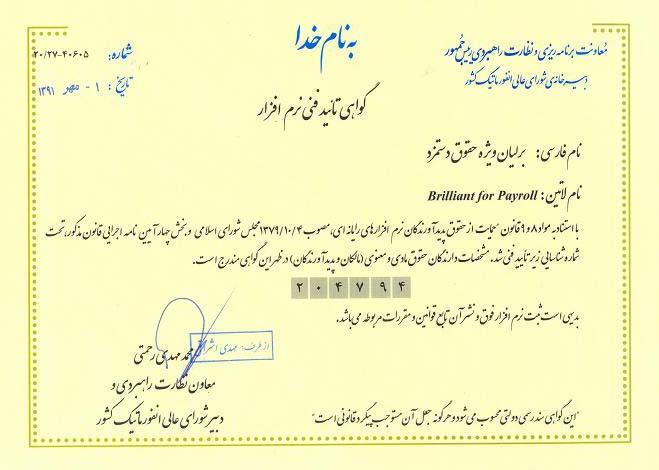 به نام خدا
معاونت برنامه ریزی و نظارت راهبردی رییس جمهور
دبیرخانه‌ی شورای عالی انفورماتیک کشور
شماره: ۲۰/۲۷-۴۰۶۰۵
تاریخ: ۱ - مهر ۱۳۹۱
گواهی تائید فنی نرم افزار
نام فارسی: برلیان ویژه حقوق دستمزد
نام لاتین: Brilliant for Payroll
با استناد به مواد ۸ و ۹ قانون "حمایت از حقوق پدیدآورندگان نرم افزارهای رایانه ای، مصوب ۱۳۷۹/۱۰/۴ مجلس شورای اسلامی و بخش چهار آیین نامه اجرایی قانون مذکور، تحت
شماره شناسایی زیر تایید فنی شد. مشخصات دارندگان حقوق مادی و معنوی (مالکان و پدیدآورندگان) در ظهر این گواهی مندرج است.
۲۰۴۷۹۴
بدیهی است ثبت نرم افزار فوق و نشر آن تابع قوانین و مقررات مربوطه می‌باشد.
از طرف: مهدی
محمد مهدی رحمتی
معاون نظارت راهبردی و
دبیر شورای عالی انفورماتیک کشور
"این گواهی سند رسمی دولتی محسوب می شود و هرگونه جعل آن مستوجب پیگرد قانونی است"